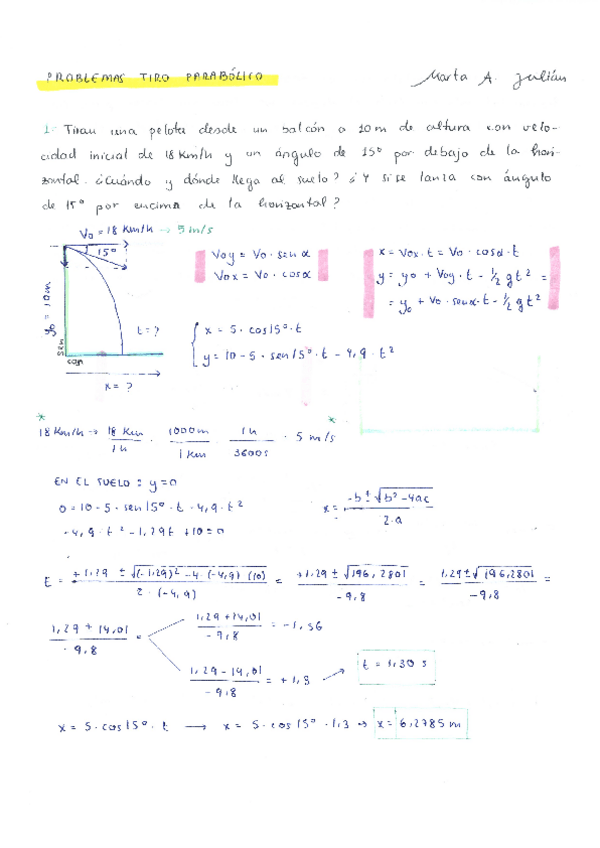 PROBLEMAS TIRO PARABÓLICO
Marta A. Julián
1- Tiran una pelota desde un balcón a 10m de altura con velo-
cidad inicial de 18 Km/h y un ángulo de 15º por debajo de la hori-
zontal. ¿Cuándo y dónde llega al suelo? ¿Y si se lanza con ángulo
de 15º por encima de la horizontal?
V₀ = 18 Km/h → 5 m/s
15º
y₀ = 10m
t = ?
sen
cos
x = ?
Voy = Vo · sen α
Vox = Vo · cos α
x = Vox · t = Vo · cosα · t
y = yo + Voy · t - ½ g t² =
= yo + Vo · senα · t - ½ g t²
x = 5 · cos15º · t
y = 10 - 5 · sen15º · t - 4,9 · t²
*
18 Km/h → 18 Km / 1h · 1000m / 1 Km · 1h / 3600s · 5 m/s
*
EN EL SUELO : y = 0
0 = 10 - 5 · sen15º · t - 4,9 · t²
-4,9 · t² - 1,29t + 10 = 0
x = -b ± √b² - 4ac / 2·a
t = +1,29 ± √(-1,29)² - 4 · (-4,9) (10) / 2 · (-4,9) = +1,29 ± √196,2801 / -9,8 = 1,29 ± √196,2801 / -9,8 =
1,29 ± 14,01 / -9,8 =
1,29 + 14,01 / -9,8 = -1,56
1,29 - 14,01 / -9,8 = +1,3
t = 1,30 s
x = 5 · cos15º · t → x = 5 · cos15º · 1,3 → x = 6,2785 m